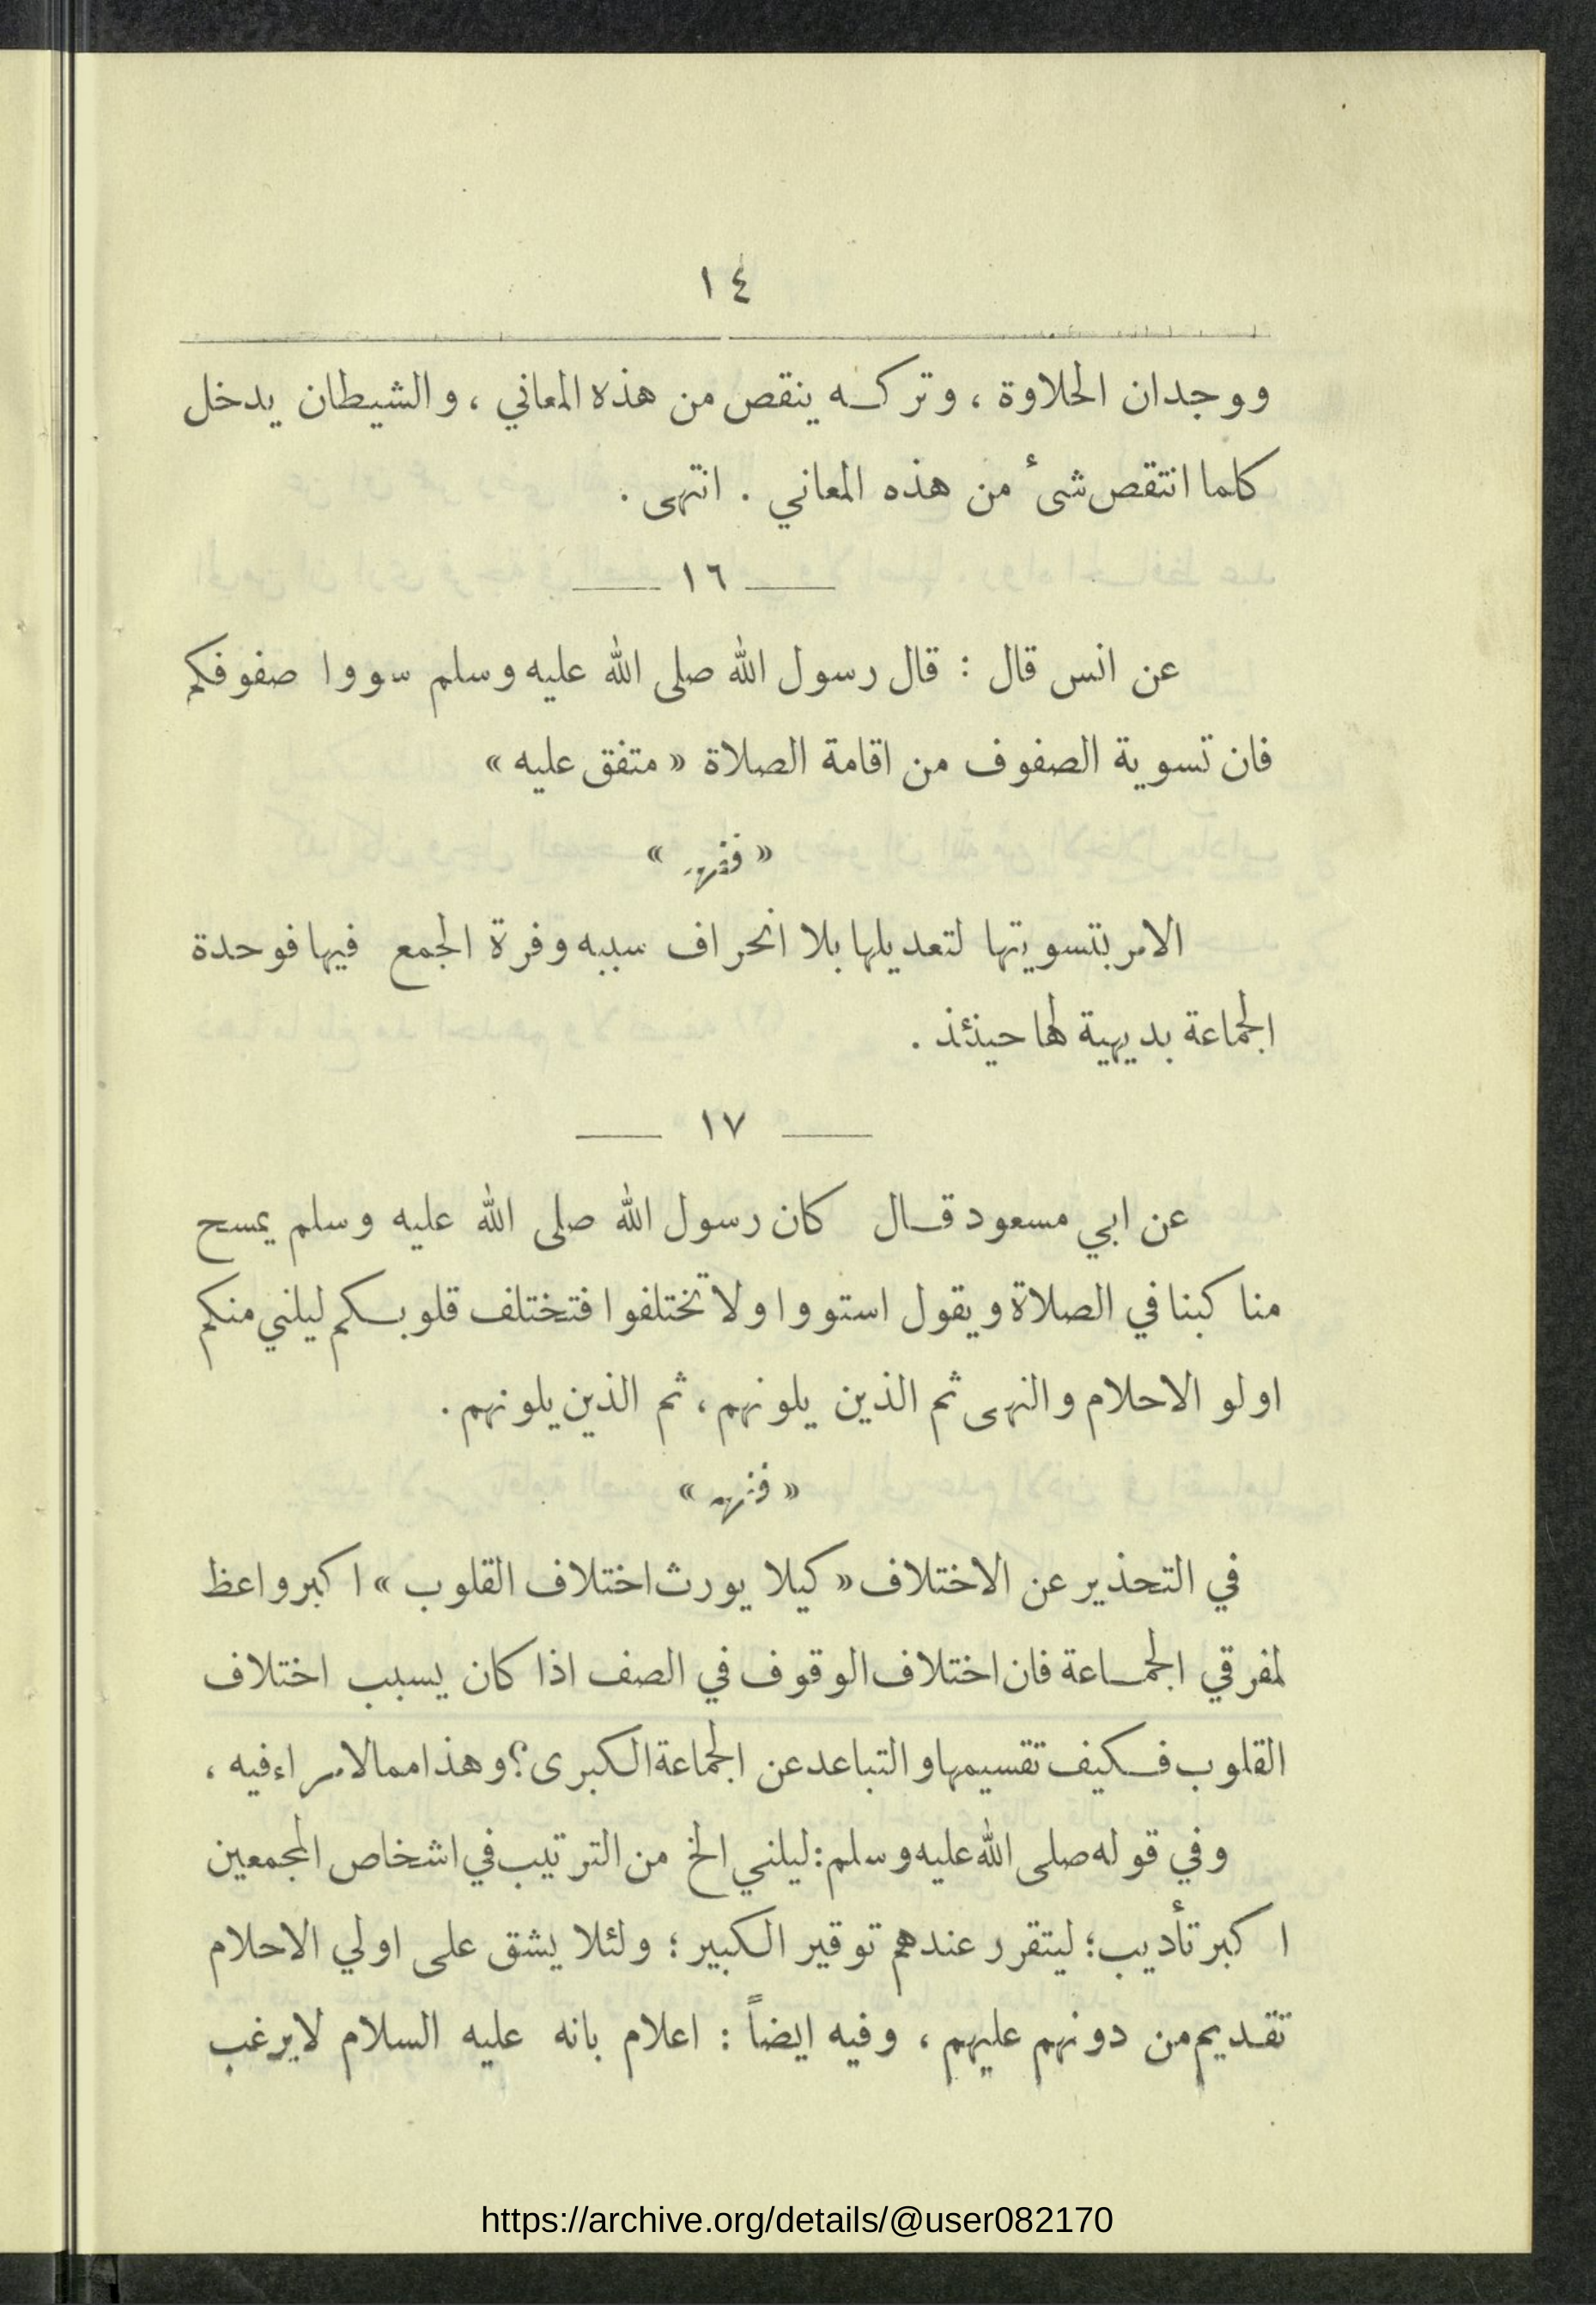 ١٤
ووجدان الحلاوة ، وتركه ينقص من هذه المعاني ، والشيطان يدخل
كلما انتقص شىء من هذه المعاني . انتهى .
١٦
عن انس قال : قال رسول الله صلى الله عليه وسلم سووا صفوفكم
فان تسوية الصفوف من اقامة الصلاة « متفق عليه »
« فقهه »
الامر بتسويتها لتعديلها بلا انحراف سببه وفرة الجمع فيها فوحدة
الجماعة بديهية لها حينئذ .
١٧
عن ابي مسعود قال كان رسول الله صلى الله عليه وسلم يمسح
مناكبنا في الصلاة ويقول استووا ولا تختلفوا فتختلف قلوبكم ليلني منكم
اولو الاحلام والنهى ثم الذين يلونهم ، ثم الذين يلونهم .
« فقهه »
في التحذير عن الاختلاف « كيلا يورث اختلاف القلوب » اكبر واعظ
لمفرقي الجماعة فان اختلاف الوقوف في الصف اذا كان يسبب اختلاف
القلوب فكيف تقسيمها والتباعد عن الجماعة الكبرى؟ وهذا مما لامراء فيه ،
وفي قوله صلى الله عليه وسلم : ليلني الخ من الترتيب في اشخاص المجمعين
اكبر تأديب ؛ ليتقرر عندهم توقير الكبير ؛ ولئلا يشق على اولي الاحلام
تقديم من دونهم عليهم ، وفيه ايضاً : اعلام بانه عليه السلام لايرغب
https://archive.org/details/@user082170